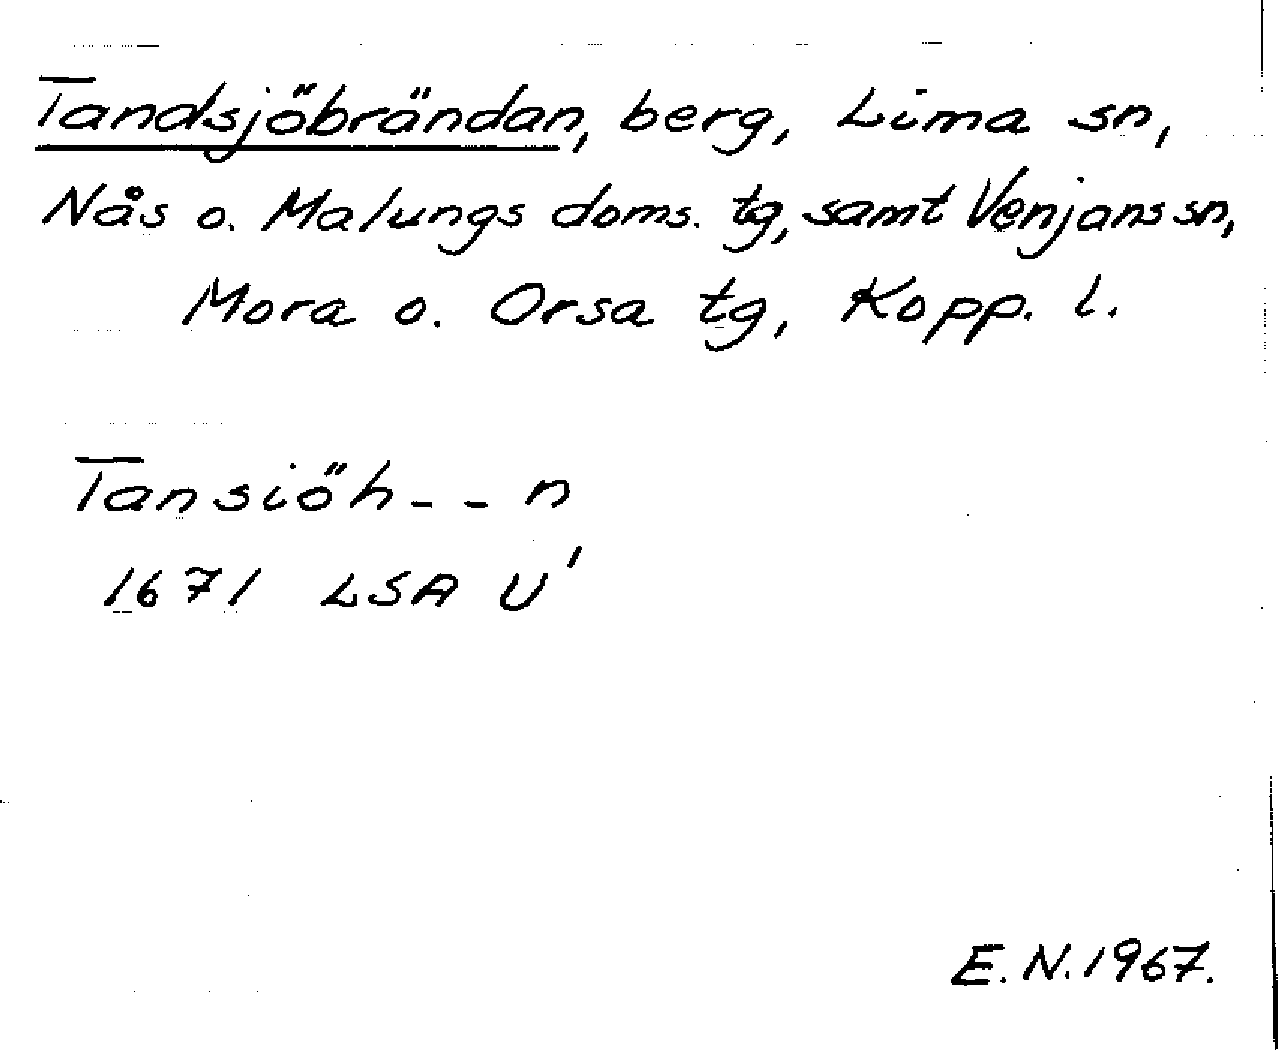 Tandsjöbrändan, berg, Lima sn,
Nås o. Malungs doms. tg, samt Venjans sn,
Mora o. Orsa tg, Kopp. l.
Tansiöh - - n
1671 LSA U'
E. N. 1967.